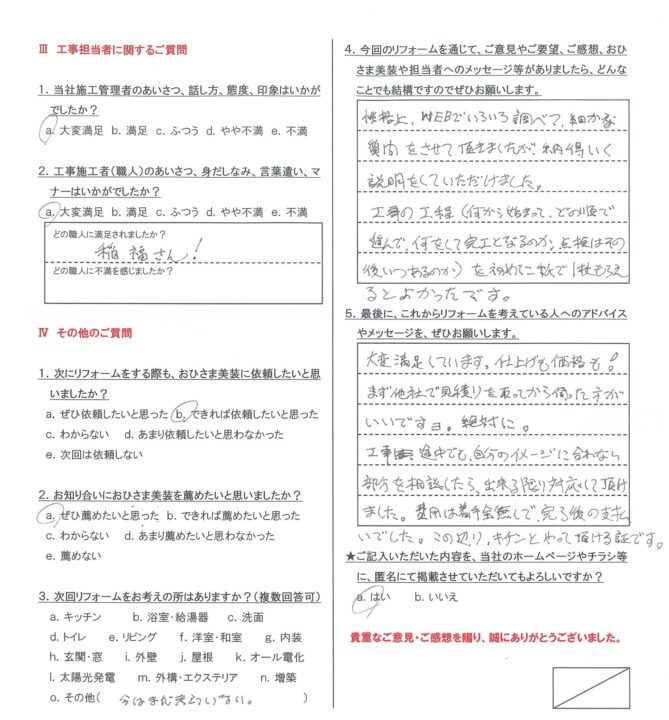 Ⅲ 工事担当者に関するご質問
1. 当社施工管理者のあいさつ、話し方、態度、印象はいかが
でしたか？
a. 大変満足 b. 満足 c. ふつう d. やや不満 e. 不満
2. 工事施工者（職人）のあいさつ、身だしなみ、言葉遣い、マ
ナーはいかがでしたか？
a. 大変満足 b. 満足 c. ふつう d. やや不満 e. 不満
どの職人に満足されましたか？
稲福さん！
どの職人に不満を感じましたか？
Ⅳ その他のご質問
1. 次にリフォームをする際も、おひさま美装に依頼したいと思
いましたか？
a. ぜひ依頼したいと思った b. できれば依頼したいと思った
c. わからない d. あまり依頼したいと思わなかった
e. 次回は依頼しない
2. お知り合いにおひさま美装を薦めたいと思いましたか？
a. ぜひ薦めたいと思った b. できれば薦めたいと思った
c. わからない d. あまり薦めたいと思わなかった
e. 薦めない
3. 次回リフォームをお考えの所はありますか？（複数回答可）
a. キッチン b. 浴室・給湯器 c. 洗面
d. トイレ e. リビング f. 洋室・和室 g. 内装
h. 玄関・窓 i. 外壁 j. 屋根 k. オール電化
l. 太陽光発電 m. 外構・エクステリア n. 増築
o. その他( 今はまだ考えていない。 )
4. 今回のリフォームを通じて、ご意見やご要望、ご感想、おひ
さま美装や担当者へのメッセージ等がありましたら、どんな
ことでも結構ですのでぜひお願いします。
性格上、WEBでいろいろ調べて、細かな
質問をさせて頂きましたが、納得いく
説明をしていただけました。
工事の工程（何から始まって、どの順で
進んで、何をして完工となるのか、点検はその
後いつあるのか）を初めに紙で1枚もらえ
るとよかったです。
5. 最後に、これからリフォームを考えている人へのアドバイス
やメッセージを、ぜひお願いします。
大変満足しています。仕上げも価格も！
まず他社で見積りを取ってから伺った方が
いいですョ。絶対に。
工事 途中でも、自分のイメージに合わない
部分を相談したら、出来る限り対応して頂け
ました。費用は着手金無しで、完了後の支払
いでした。この辺り、キチンとやって頂ける証です。
★ご記入いただいた内容を、当社のホームページやチラシ等
に、匿名にて掲載させていただいてもよろしいですか？
a. はい b. いいえ
貴重なご意見・ご感想を賜り、誠にありがとうございました。